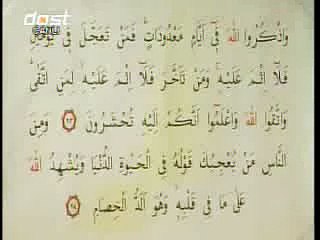 dost
وَاذْكُرُوا اللّٰهَ فٖٓى اَيَّامٍ مَعْدُودَاتٍ فَمَنْ تَعَجَّلَ فٖى يَوْمَيْنِ
فَلَٓا اِثْمَ عَلَيْهِ وَمَنْ تَاَخَّرَ فَلَٓا اِثْمَ عَلَيْهِ لِمَنِ اتَّقٰى
وَاتَّقُوا اللّٰهَ وَاعْلَمُٓوا اَنَّكُمْ اِلَيْهِ تُحْشَرُونَ ﴿٢٠٣﴾ وَمِنَ
النَّاسِ مَنْ يُعْجِبُكَ قَوْلُهُ فِى الْحَيٰوةِ الدُّنْيَا وَيُشْهِدُ اللّٰهَ
عَلٰى مَا فٖى قَلْبِهٖ وَهُوَ اَلَدُّ الْخِصَامِ ﴿٢٠٤﴾